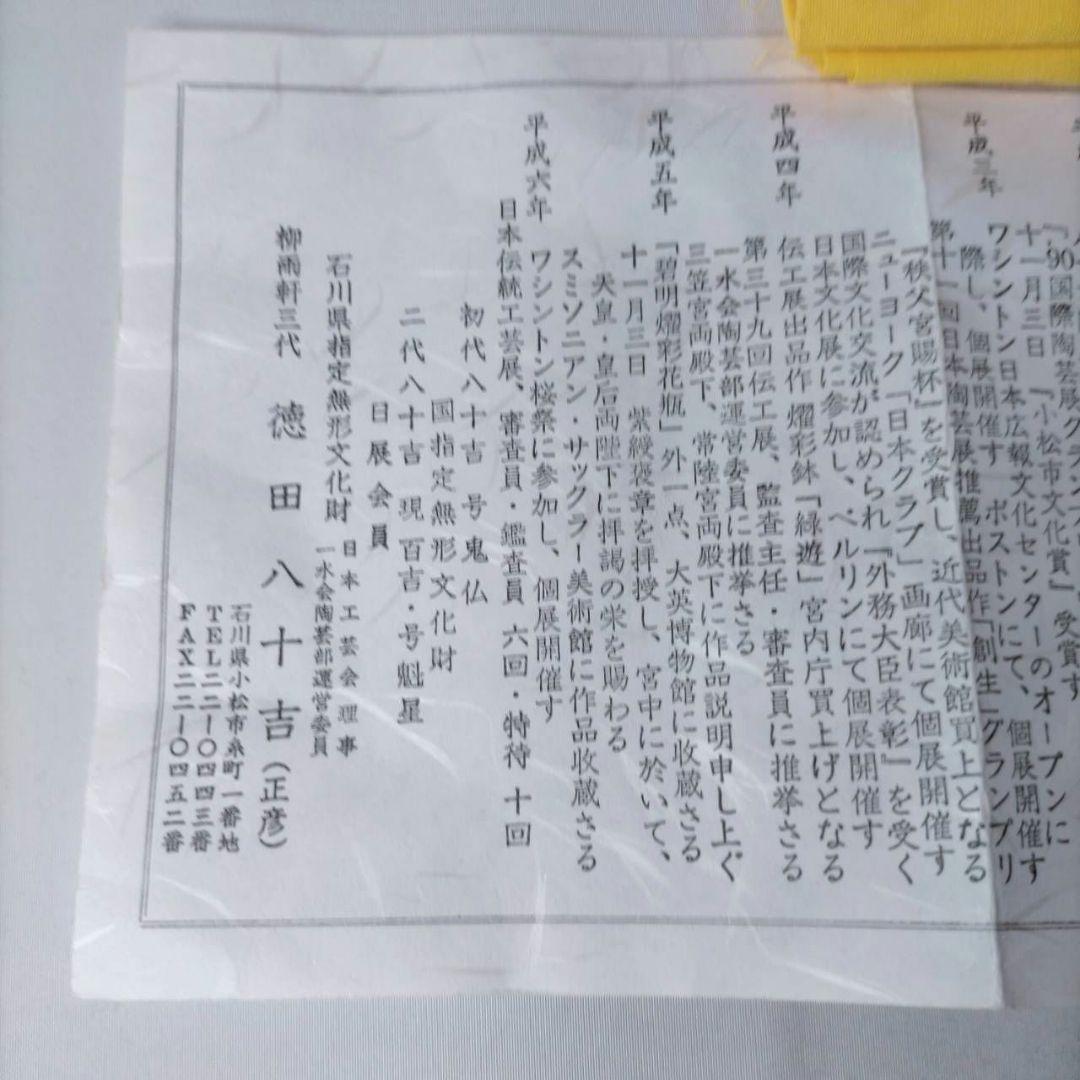 『90国際陶芸展グランプリ
十一月三日 『小松市文化賞』受賞す
平成三年
ワシントン日本広報文化センターのオープンに
際し、個展開催す ボストンにて、個展開催す
第十一回日本陶芸展推薦出品作「創生」グランプリ
『秩父宮賜杯』を受賞し、近代美術館買上となる
平成四年
ニューヨーク「日本クラブ」画廊にて個展開催す
国際文化交流が認められ『外務大臣表彰』を受く
日本文化展に参加し、ベルリンにて個展開催す
伝工展出品作 燿彩鉢「緑遊」宮内庁買上げとなる
第三十九回伝工展、監査主任・審査員に推挙さる
一水会陶芸部運営委員に推挙さる
平成五年
三笠宮両殿下、常陸宮両殿下に作品説明申し上ぐ
「碧明燿彩花瓶」外一点、大英博物館に収蔵さる
十一月三日 紫綬褒章を拝授し、宮中に於いて、
天皇・皇后両陛下に拝謁の栄を賜わる
平成六年
スミソニアン・サックラー美術館に作品収蔵さる
ワシントン桜祭に参加し、個展開催す
日本伝統工芸展、審査員・鑑査員 六回・特待 十回
初代八十吉 号鬼仏
国指定無形文化財
二代八十吉 現百吉・号魁星
日展会員
石川県指定無形文化財
日本工芸会理事
一水会陶芸部運営委員
柳雨軒三代 徳田八十吉(正彦)
石川県小松市糸町一番地
TEL二二ー〇四四三番
FAX二二ー〇四五二番